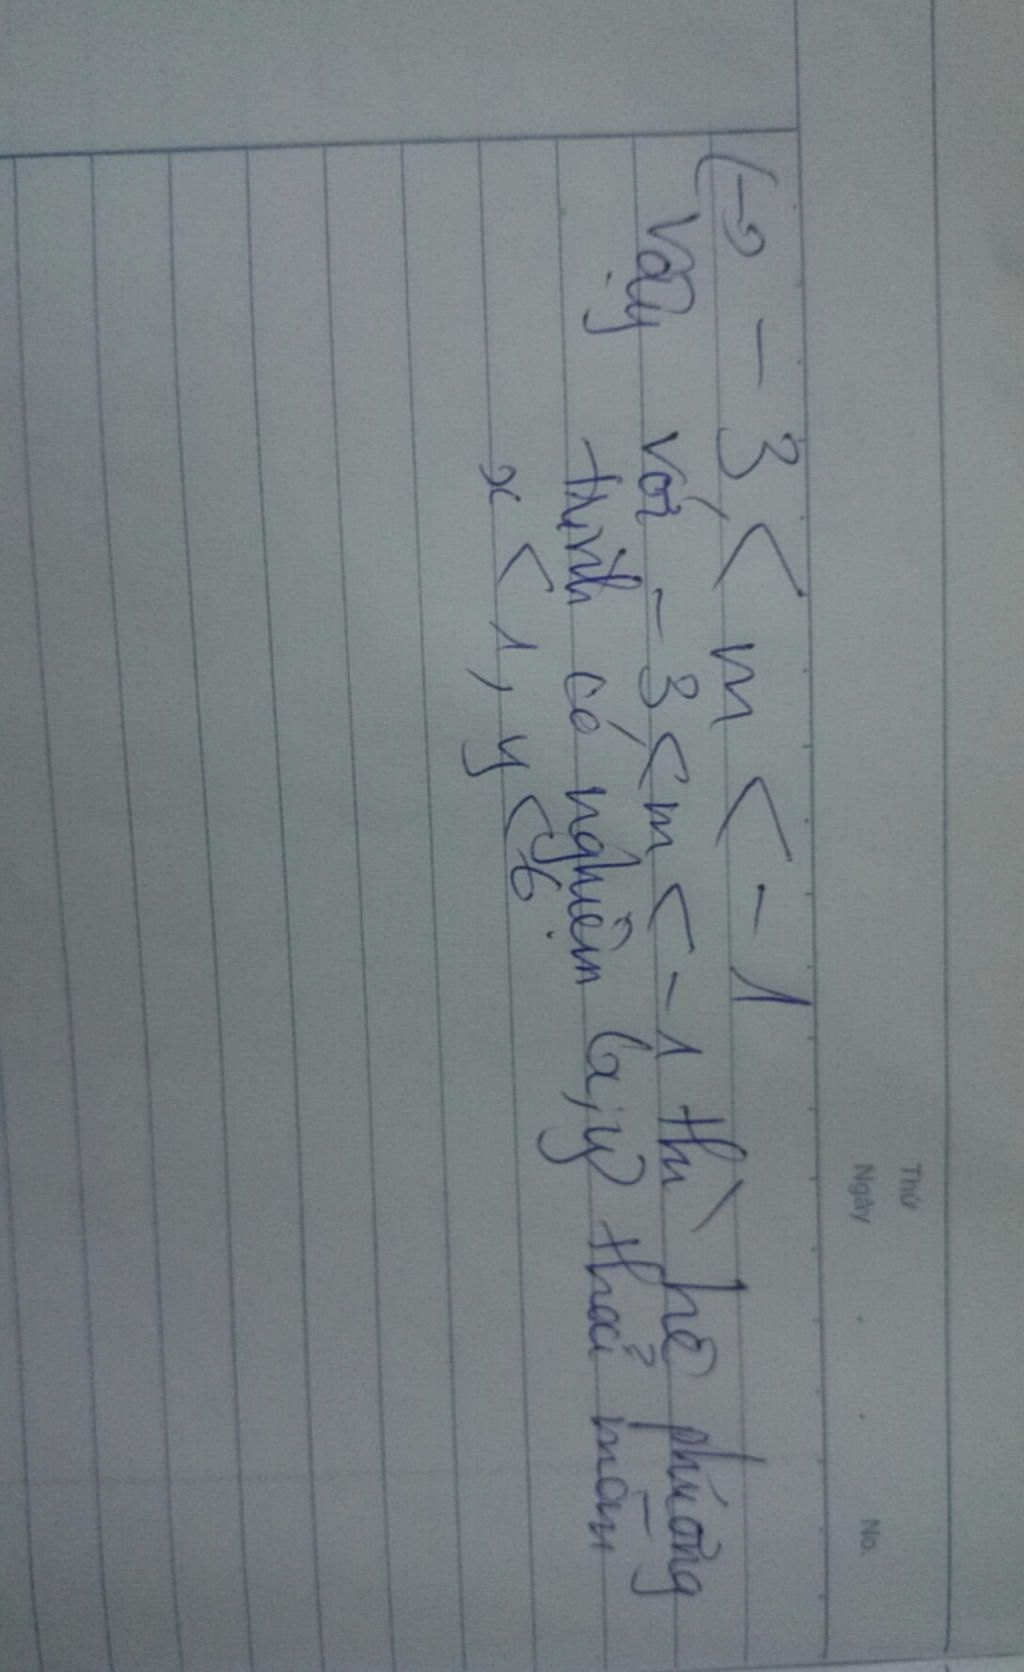 Thứ
Ngày . . No.
(→ - 3 < m < - 1
Vậy với - 3 < m < - 1 thì hệ phương
trình có nghiệm (x; y) thoả mãn
x < 1, y < 6.